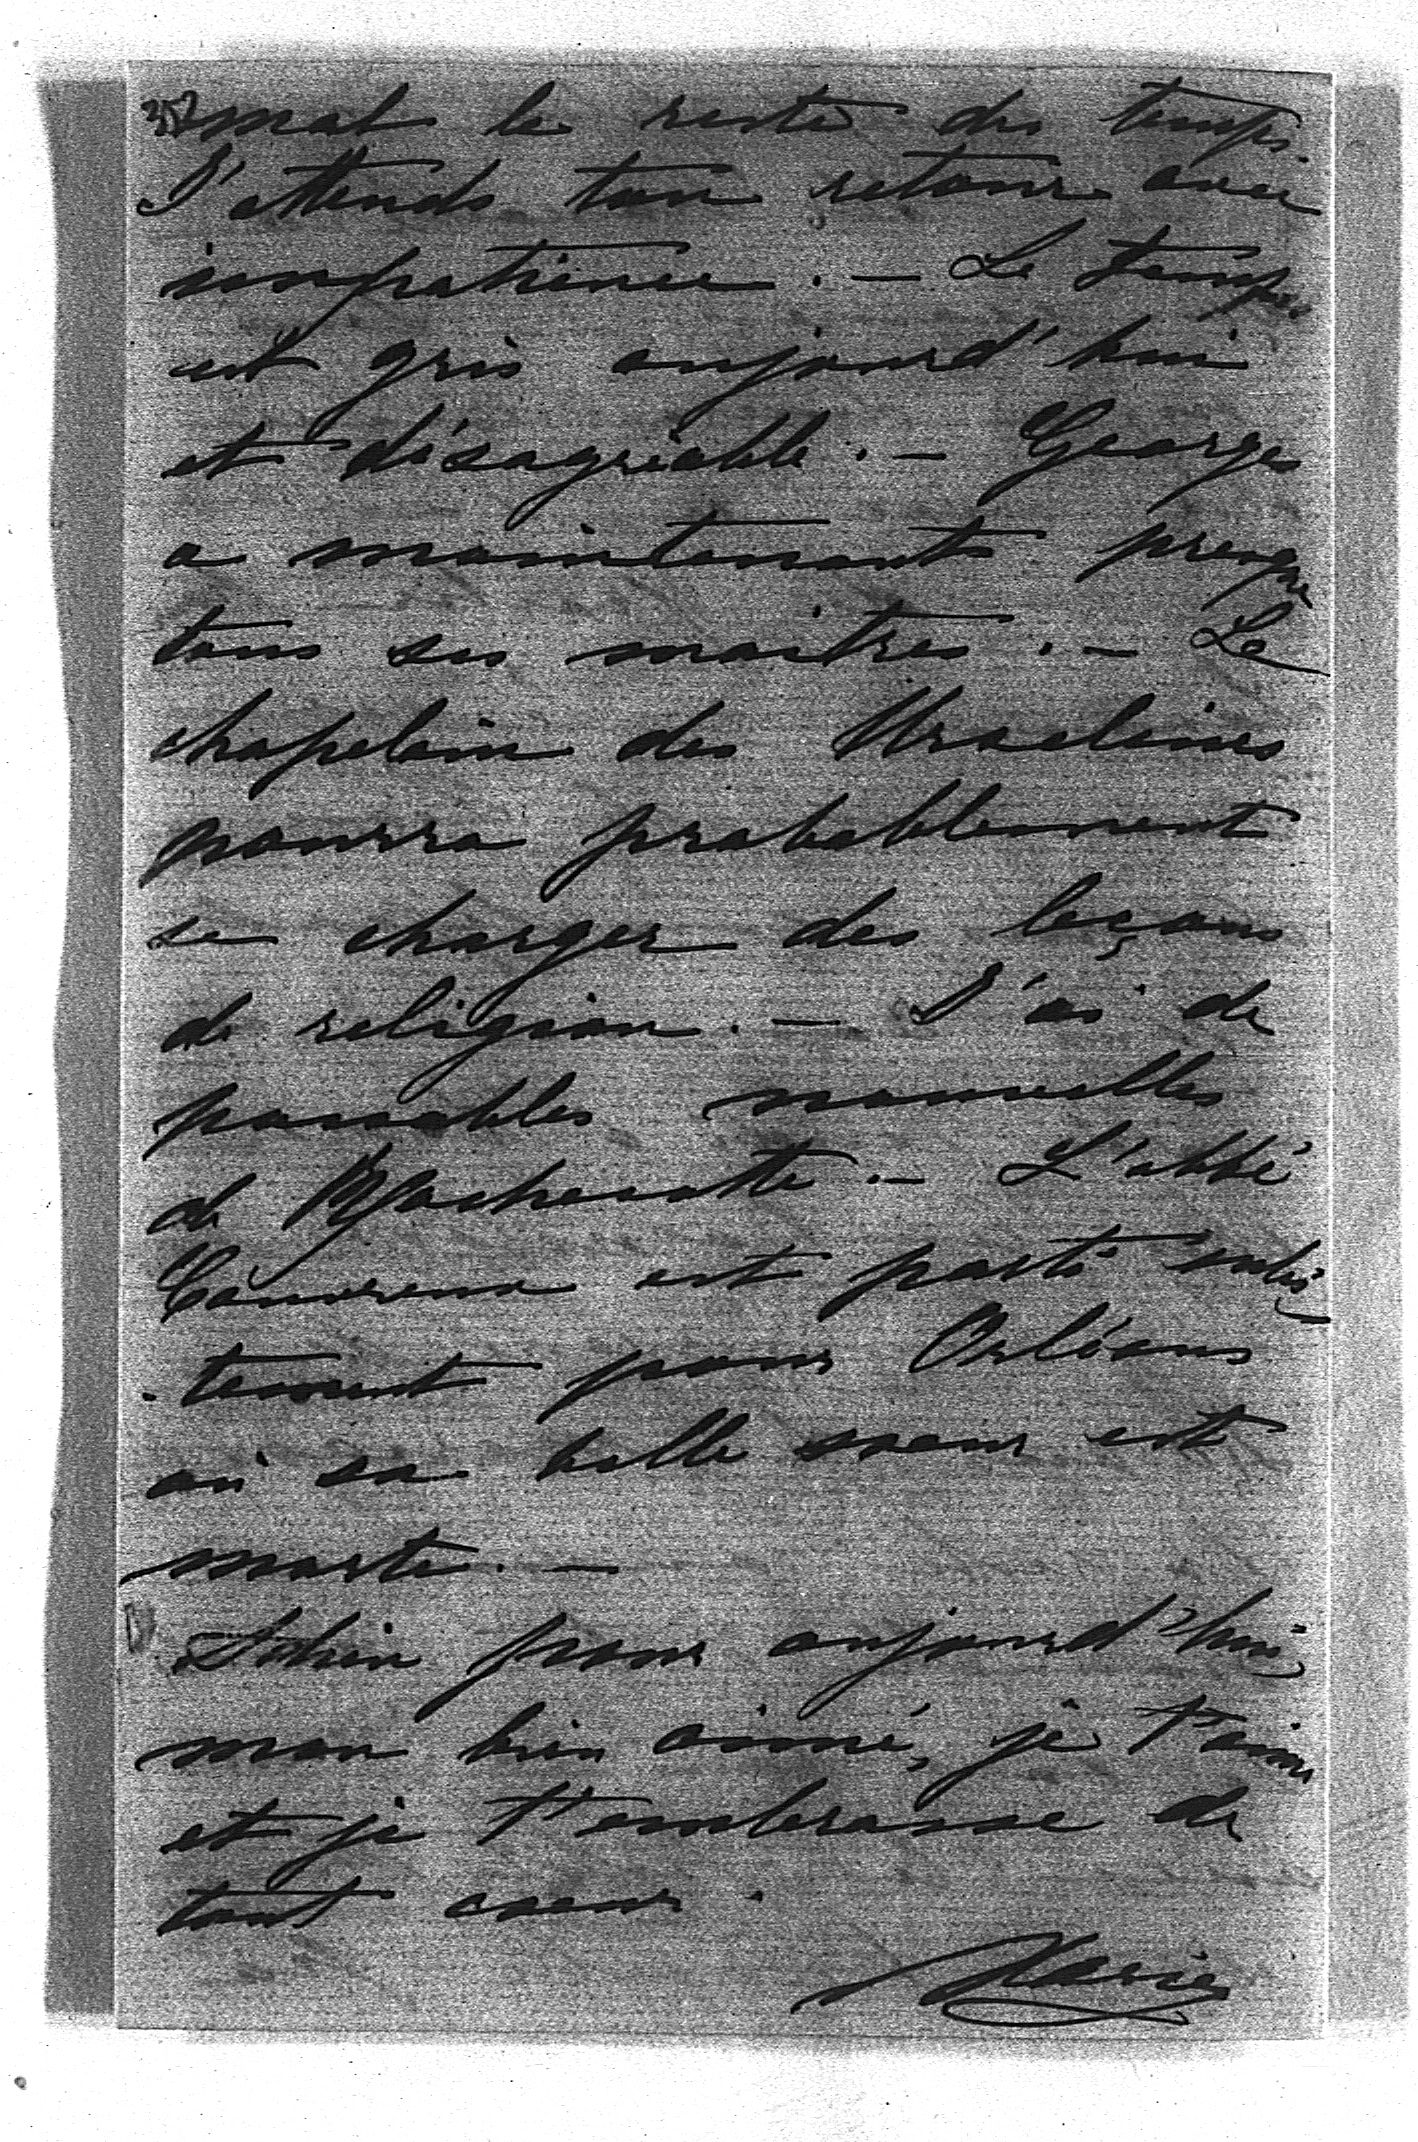 mal le reste du temps.
J'attends ton retour avec
impatience. — Le temps
est gris aujourd'hui
et désagréable. — Georges
a maintenant presque
tous ses maitres. — Le
chapelain des Urselines
pourra probablement
se charger des leçons
de religion. — J'ai de
passables nouvelles
de — L'abbé
est parti subi-
-tement pour Orléans
où sa belle soeur est
morte. —
pour aujourd'hui,
mon bien aimé, je t'aime
et je t'embrasse de
tout coeur.
Marie